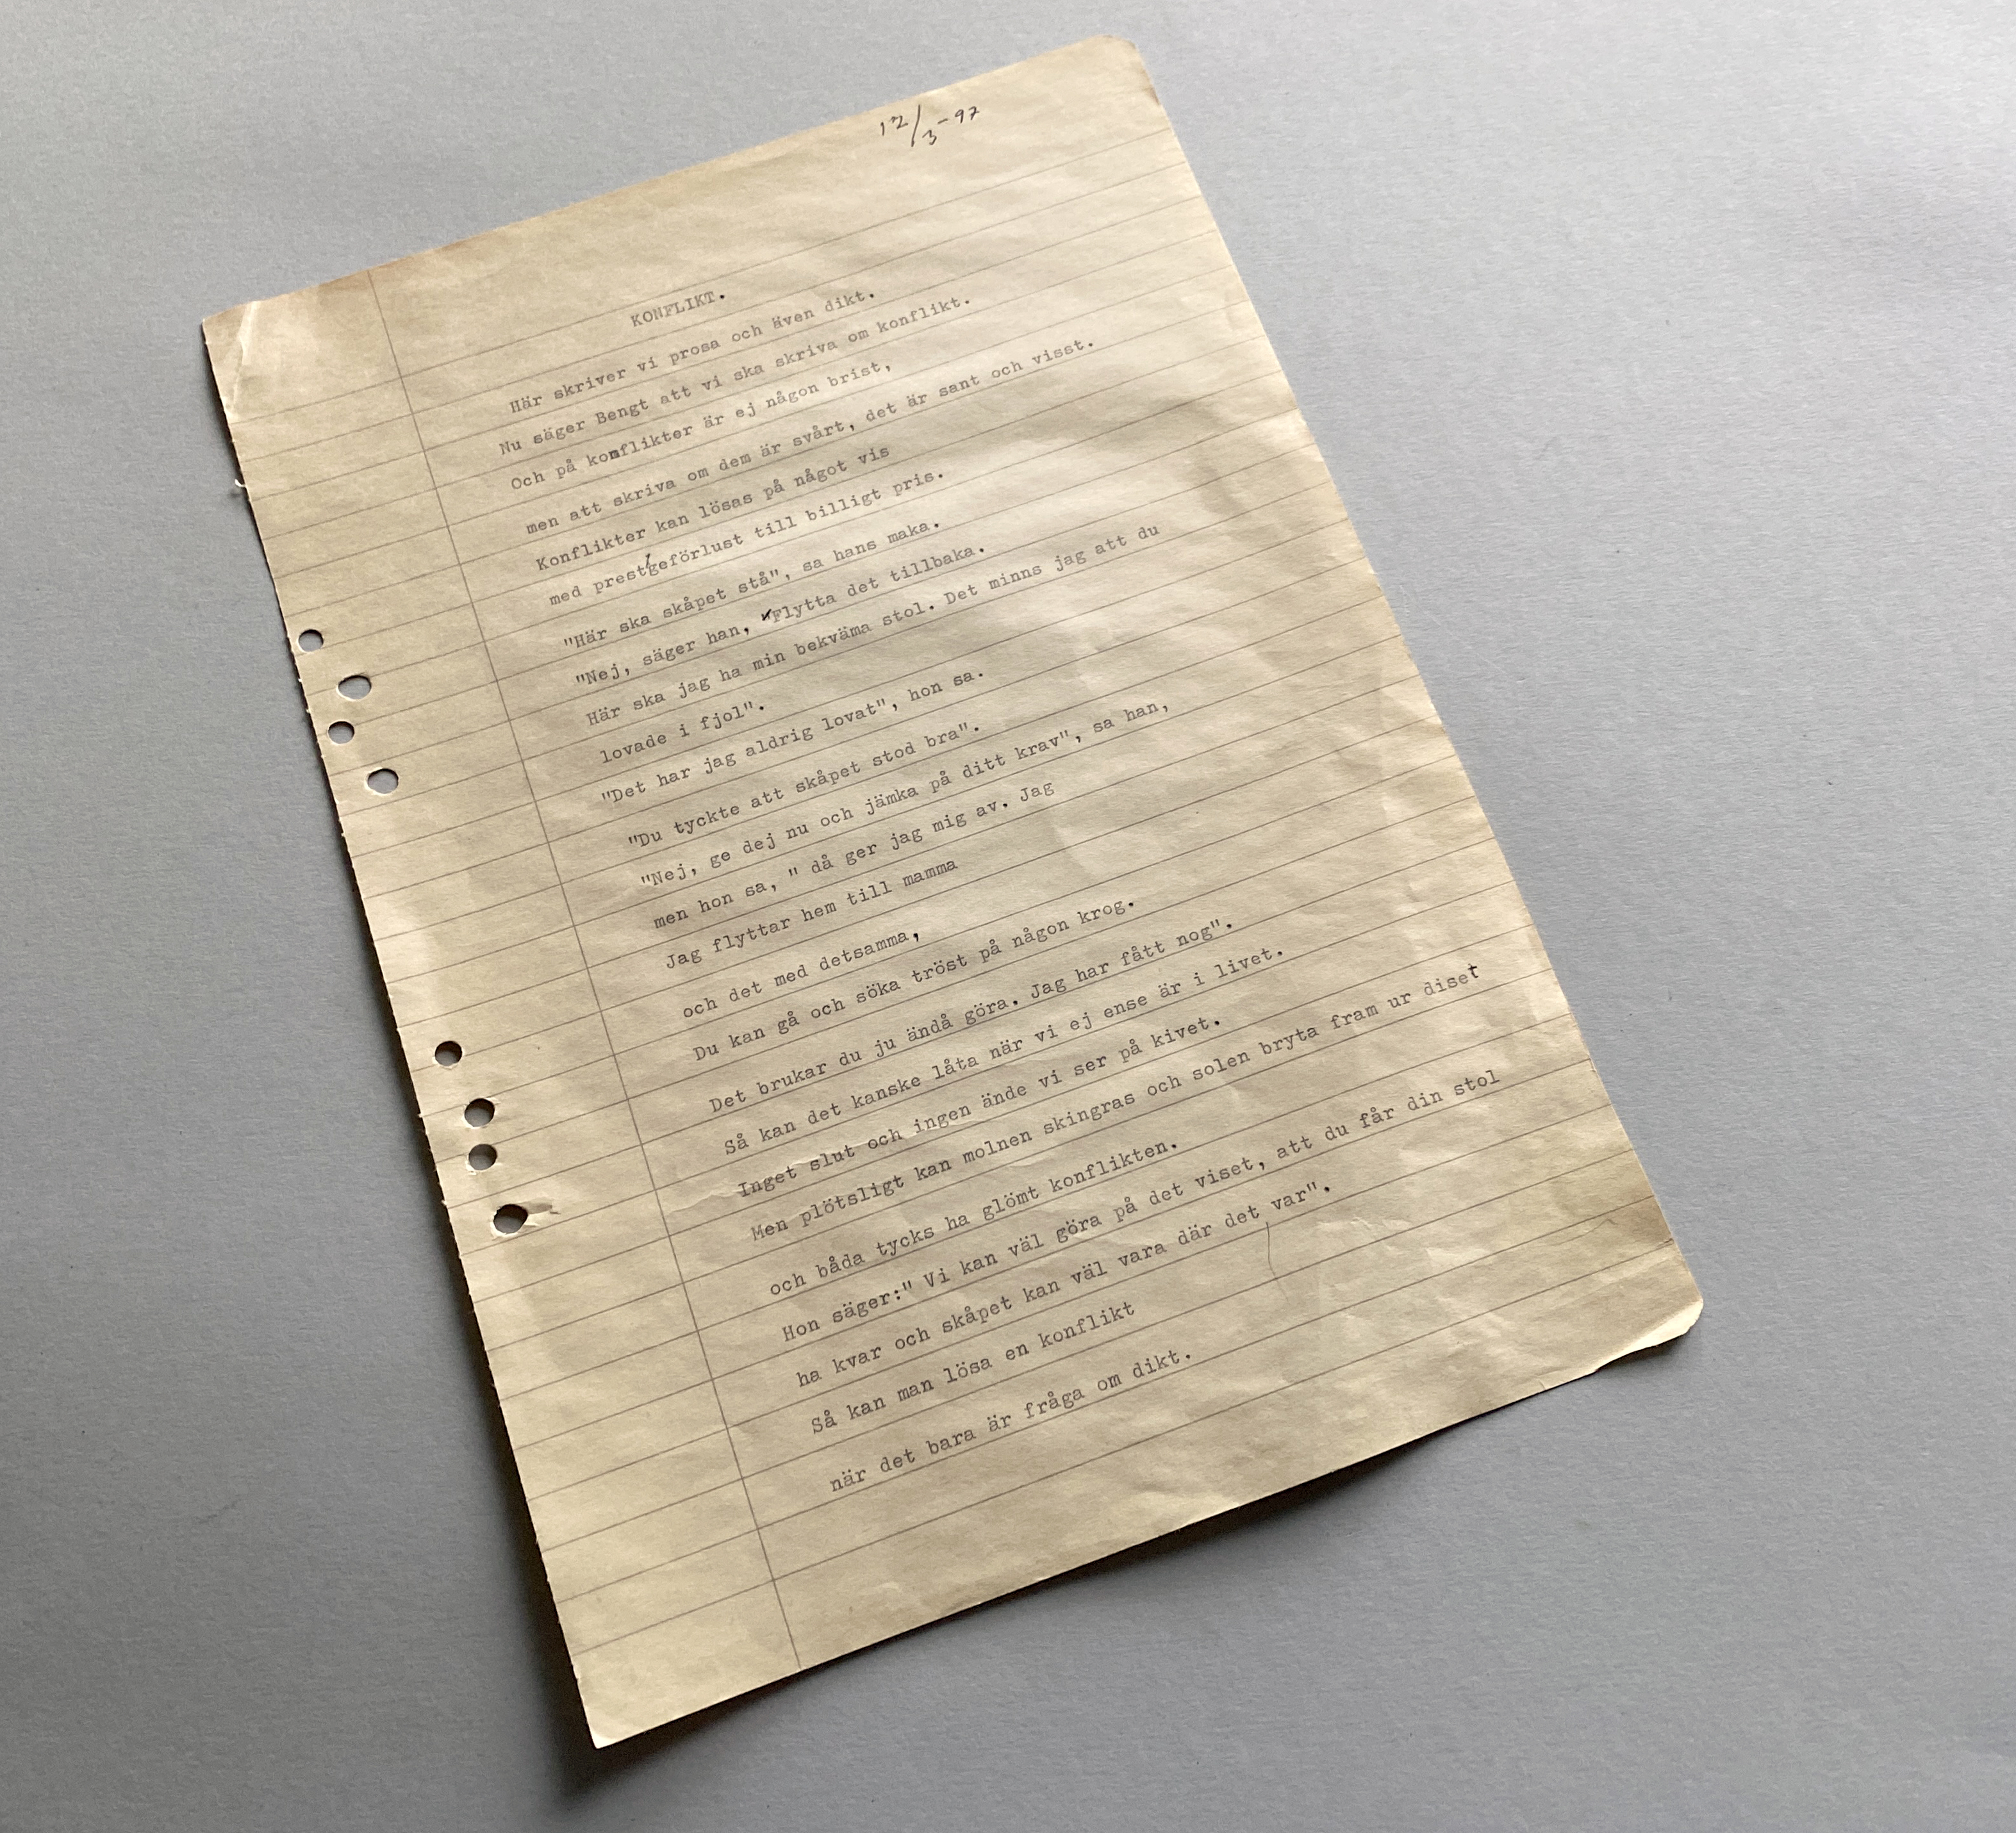 12/3-97
KONFLIKT.
Här skriver vi prosa och även dikt.
Nu säger Bengt att vi ska skriva om konflikt.
Och på konflikter är ej någon brist,
men att skriva om dem är svårt, det är sant och visst.
Konflikter kan lösas på något vis
med prestigeförlust till billigt pris.
"Här ska skåpet stå", sa hans maka.
"Nej, säger han, "Flytta det tillbaka.
Här ska jag ha min bekväma stol. Det minns jag att du
lovade i fjol".
"Det har jag aldrig lovat", hon sa.
"Du tyckte att skåpet stod bra".
"Nej, ge dej nu och jämka på ditt krav", sa han,
men hon sa, " då ger jag mig av. Jag
Jag flyttar hem till mamma
och det med detsamma,
Du kan gå och söka tröst på någon krog.
Det brukar du ju ändå göra. Jag har fått nog".
Så kan det kanske låta när vi ej ense är i livet.
Inget slut och ingen ände vi ser på kivet.
Men plötsligt kan molnen skingras och solen bryta fram ur diset
och båda tycks ha glömt konflikten.
Hon säger:" Vi kan väl göra på det viset, att du får din stol
ha kvar och skåpet kan väl vara där det var".
Så kan man lösa en konflikt
när det bara är fråga om dikt.